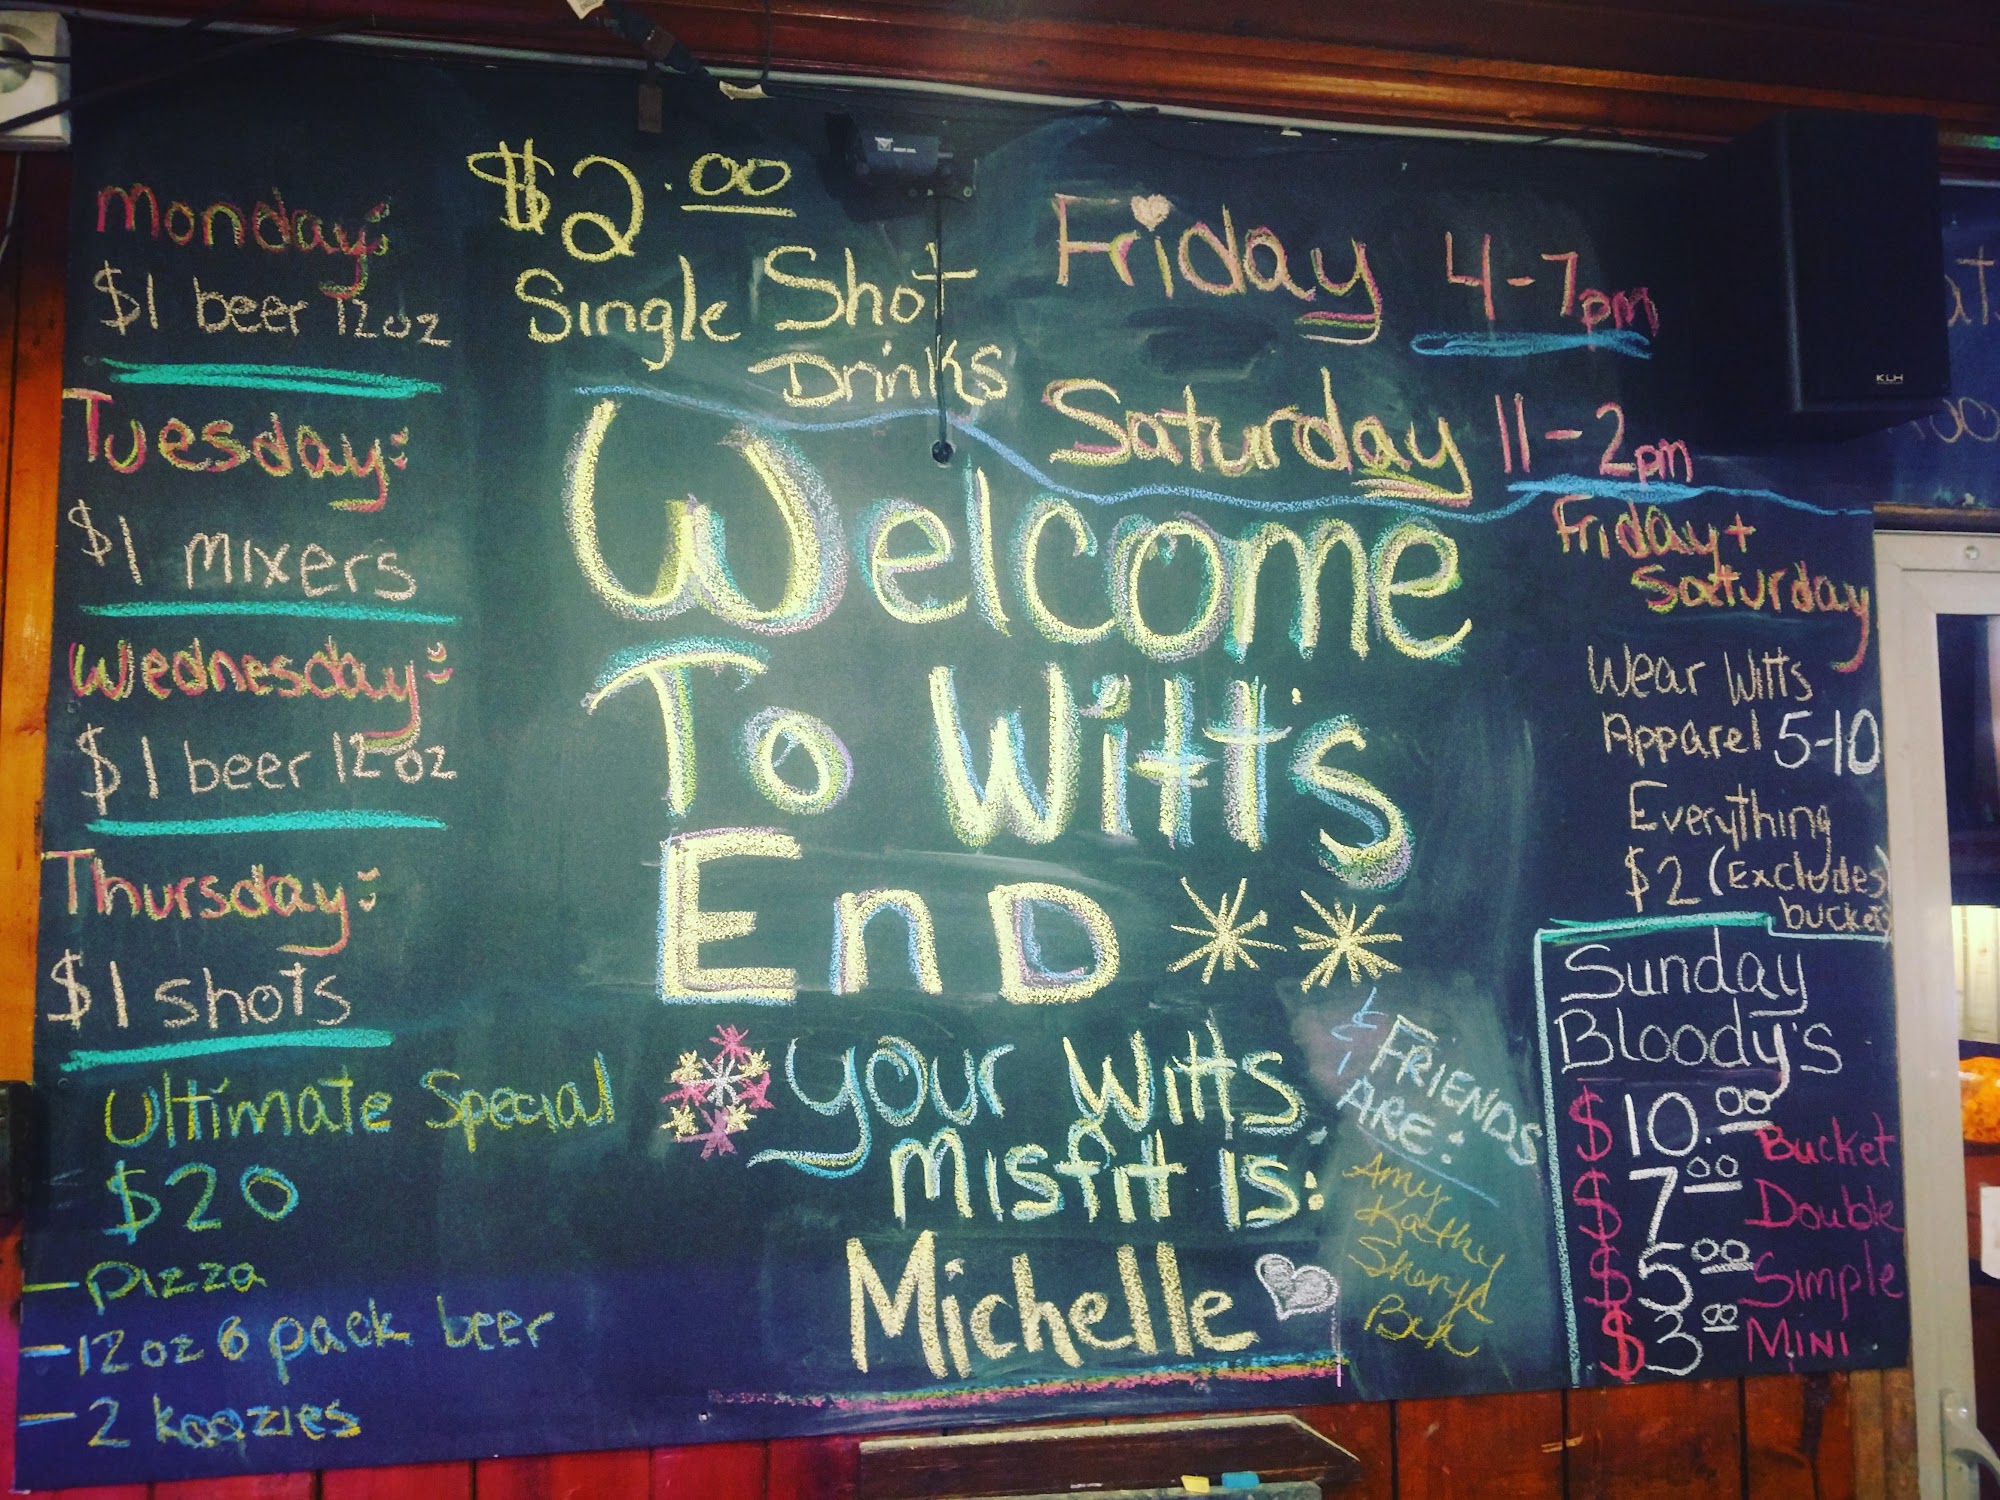 Monday:
$1 beer 12oz
Tuesday:
$1 mixers
Wednesday:
$1 beer 12oz
Thursday:
$1 shots
Ultimate Special
$20
- pizza
- 12oz 6 pack beer
- 2 koozies
$2.00
Single Shot
Drinks
Friday 4-7pm
Saturday 11-2pm
Welcome
To Witt's
End
Your Witts
Misfit is:
Michelle
& FRIENDS
ARE:
Amy
Kathy
Sheryl
Friday +
Saturday
Wear Witts
Apparel 5-10
Everything
$2 (Excludes
bucket)
Sunday
Bloody's
$10.00 Bucket
$7.00 Double
$5.00 Simple
$3.00 Mini
KLH